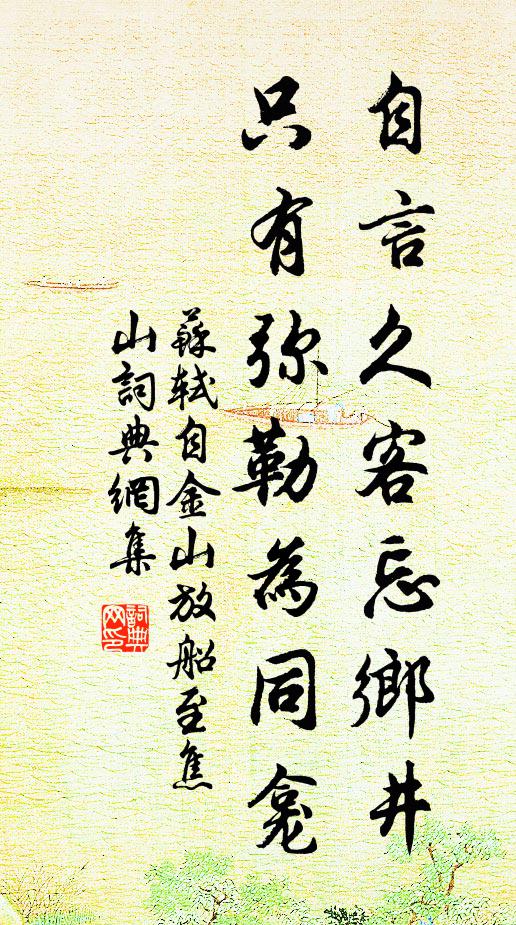 自言久客忘鄉井
只有弥勒為同龕
蘇軾自金山放船至焦
山詞典網集
詞典
网印